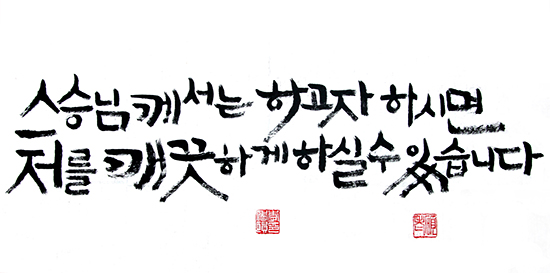 스승님께서는 하고자 하시면
저를 깨끗하게 하실 수 있습니다